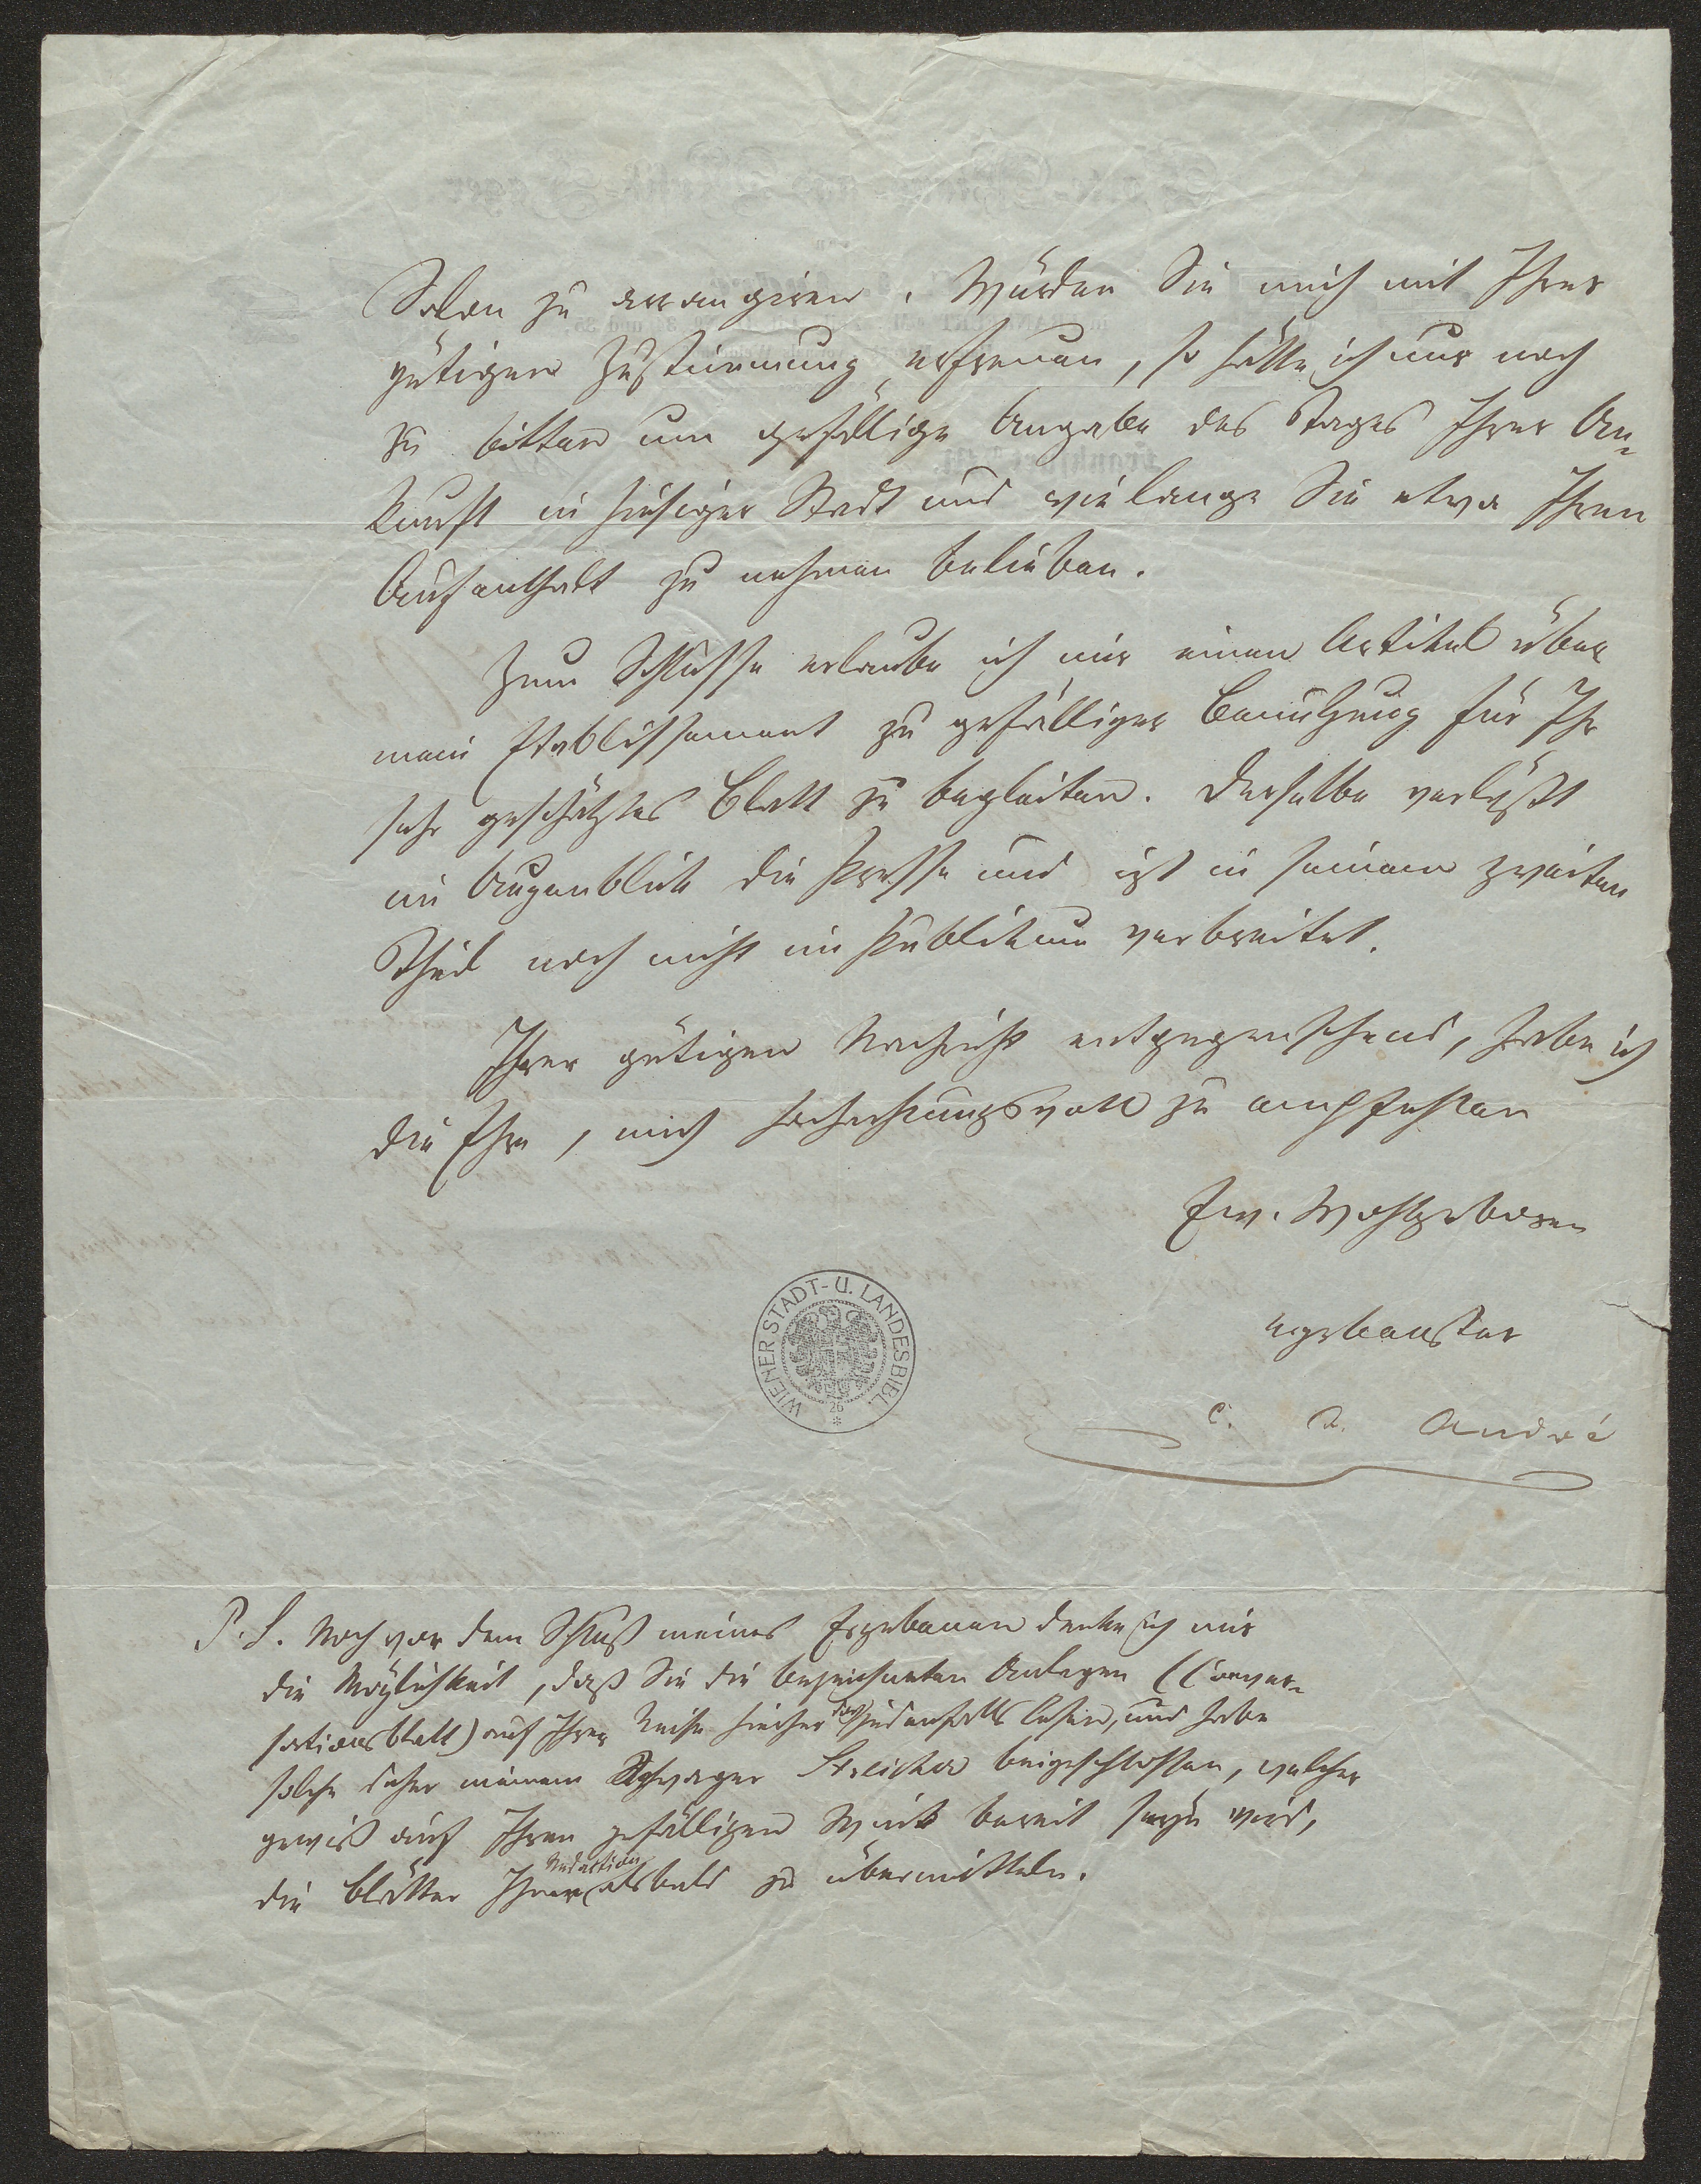 Salon zu arrangiren. Würden Sie mich mit Ihrer
gütigen Zustimmung erfreuen, so hätte ich nur noch
zu bitten um gefällige Angabe des Tages Ihrer An-
kunft in hiesiger Stadt und wie lange Sie etwa Ihren
Aufenthalt zu nehmen belieben.
Zum Schlusse erlaube ich mir einen Artikel über
mein Etablissement zu gefälliger Benützung für Ihr
sehr geschätztes Blatt zu begleiten. Derselbe verläßt
im Augenblick die Presse und ist in seinem zweiten
Theil noch nicht im Publikum verbreitet.
Ihrer gütigen Nachricht entgegensehend, habe ich
die Ehre, mich hochachtungsvoll zu empfehlen
Ew. Wohlgeboren
ergebenster
C. A. André
WIENER STADT- U. LANDESBIBL.
26
P. S. Noch vor dem Schluß meines Ergebenen denke ich mir
die Möglichkeit, daß Sie die bezeichneten Anlagen (Conver-
sationsblatt) auf Ihrer Reise hieher jedenfalls lesen, und habe
solche daher meinem Schwager Streicher beigeschlossen, welcher
gewiß auf Ihren gefälligen Wink bereit seyn wird,
die Blätter Ihrer Redaktion alsbald zu übermitteln.